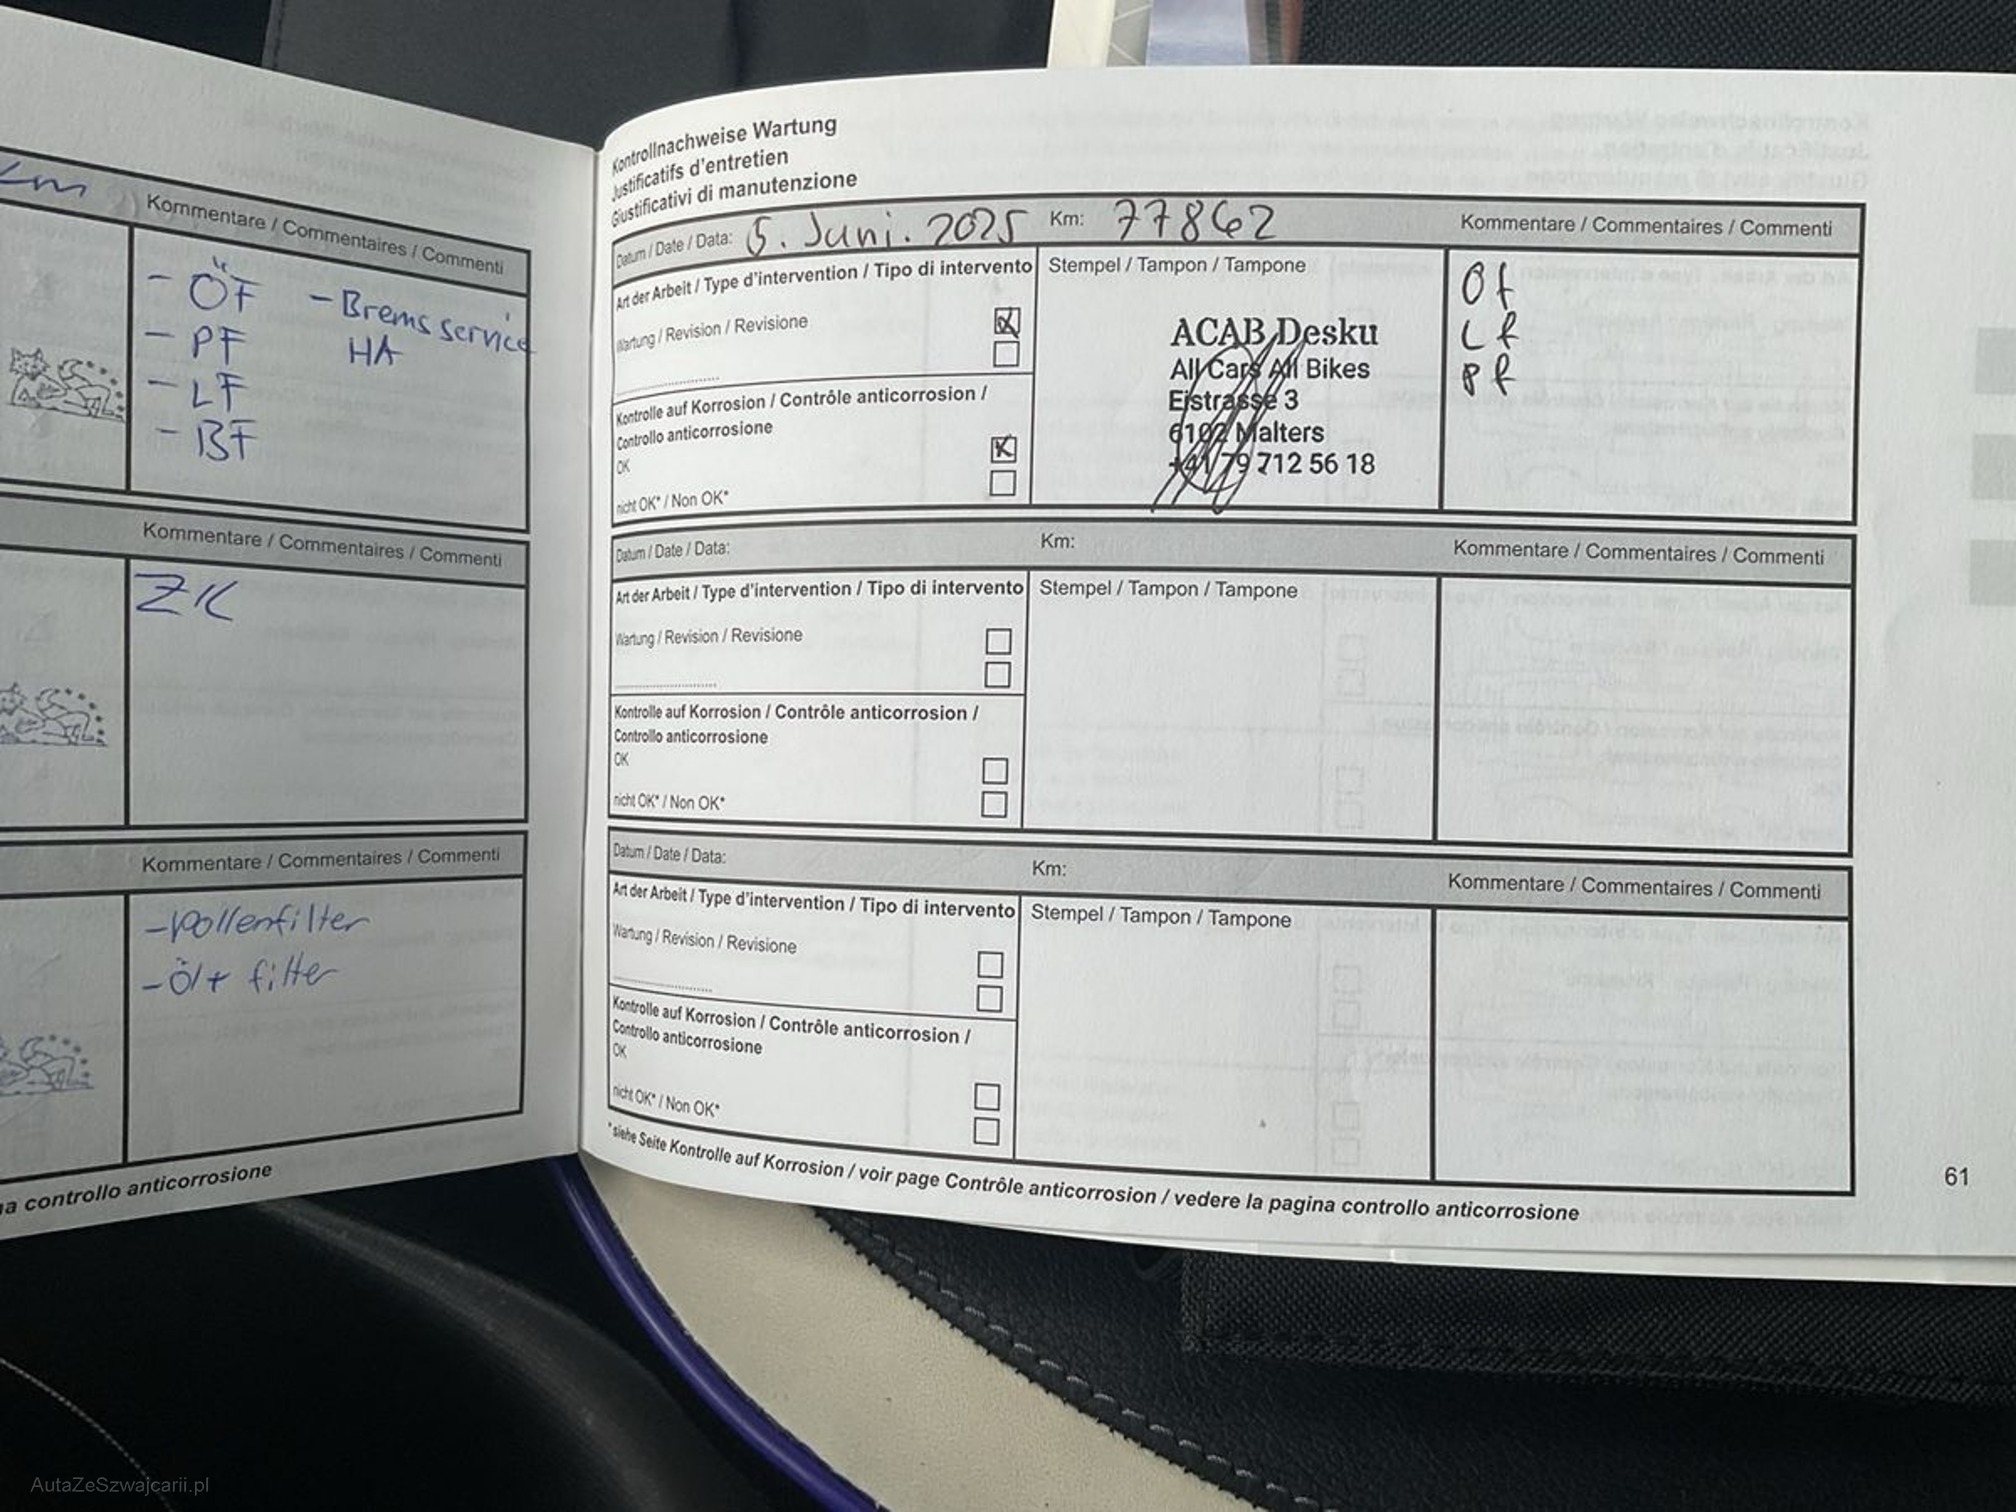 km
Kommentare / Commentaires / Commenti
- ÖF - Bremsservice
- PF HA
- LF
- BF
Kommentare / Commentaires / Commenti
ZK
Kommentare / Commentaires / Commenti
- Pollenfilter
- Öl + filter
na controllo anticorrosione
Kontrollnachweise Wartung
Justificatifs d'entretien
Giustificativi di manutenzione
Datum / Date / Data: 5. Juni. 2025 Km: 77862 Kommentare / Commentaires / Commenti
Art der Arbeit / Type d'intervention / Tipo di intervento
Wartung / Revision / Revisione
Kontrolle auf Korrosion / Contrôle anticorrosion /
Controllo anticorrosione
OK
nicht OK* / Non OK*
Stempel / Tampon / Tampone
ACAB Desku
All Cars All Bikes
Eistrasse 3
6102 Malters
+41 79 712 56 18
Öf
Lf
Pf
Datum / Date / Data: Km: Kommentare / Commentaires / Commenti
Art der Arbeit / Type d'intervention / Tipo di intervento
Wartung / Revision / Revisione
Kontrolle auf Korrosion / Contrôle anticorrosion /
Controllo anticorrosione
OK
nicht OK* / Non OK*
Stempel / Tampon / Tampone
Datum / Date / Data: Km: Kommentare / Commentaires / Commenti
Art der Arbeit / Type d'intervention / Tipo di intervento
Wartung / Revision / Revisione
Kontrolle auf Korrosion / Contrôle anticorrosion /
Controllo anticorrosione
OK
nicht OK* / Non OK*
Stempel / Tampon / Tampone
*siehe Seite Kontrolle auf Korrosion / voir page Contrôle anticorrosion / vedere la pagina controllo anticorrosione
61
AutaZeSzwajcarii.pl